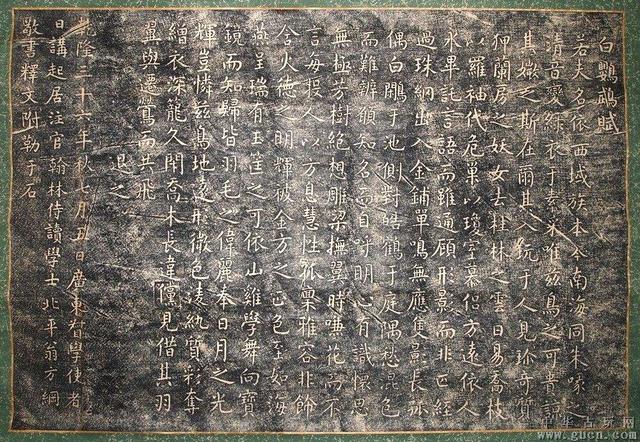 白鸚鵡賦
若夫名依西域族本今南海同朱喙之
清音變綠衣于素彩唯茲鳥之可貴諒
其媺之斯在爾其入玩于人見珍奇質
狎蘭房之妖女去桂林之雲日易喬枝
以羅袖代危巢以瓊室慕侶方遠依人
永畢託言語而雖通顧形影而非匹經
過珠納出入金鋪單鳴無應隻影長孤
偶白鷴于池側對皓鶴于庭隅愁混色
而難辨願知名而自呼明心有識懷思
無極芳樹絕想雕梁撫翼時嗛花而不
言每投人以方息慧性孤稟雅容非飾
含火德之明輝被金方之正色至如海
燕呈瑞有玉筐之可依山雞學舞向寶
鏡而知歸皆羽毛之偉麗奉日月之光
輝豈憐茲鳥地遠形微色凌紈質彩奪
繒衣深籠久閉喬木長違儻見借其羽
翼與遷鶯而共飛
退之
乾隆三十六年秋七月五日廣東督學使者
日講起居注官翰林侍讀學士北平翁方綱
敬書釋文附勒于石
中华古玩网
www.gucn.com